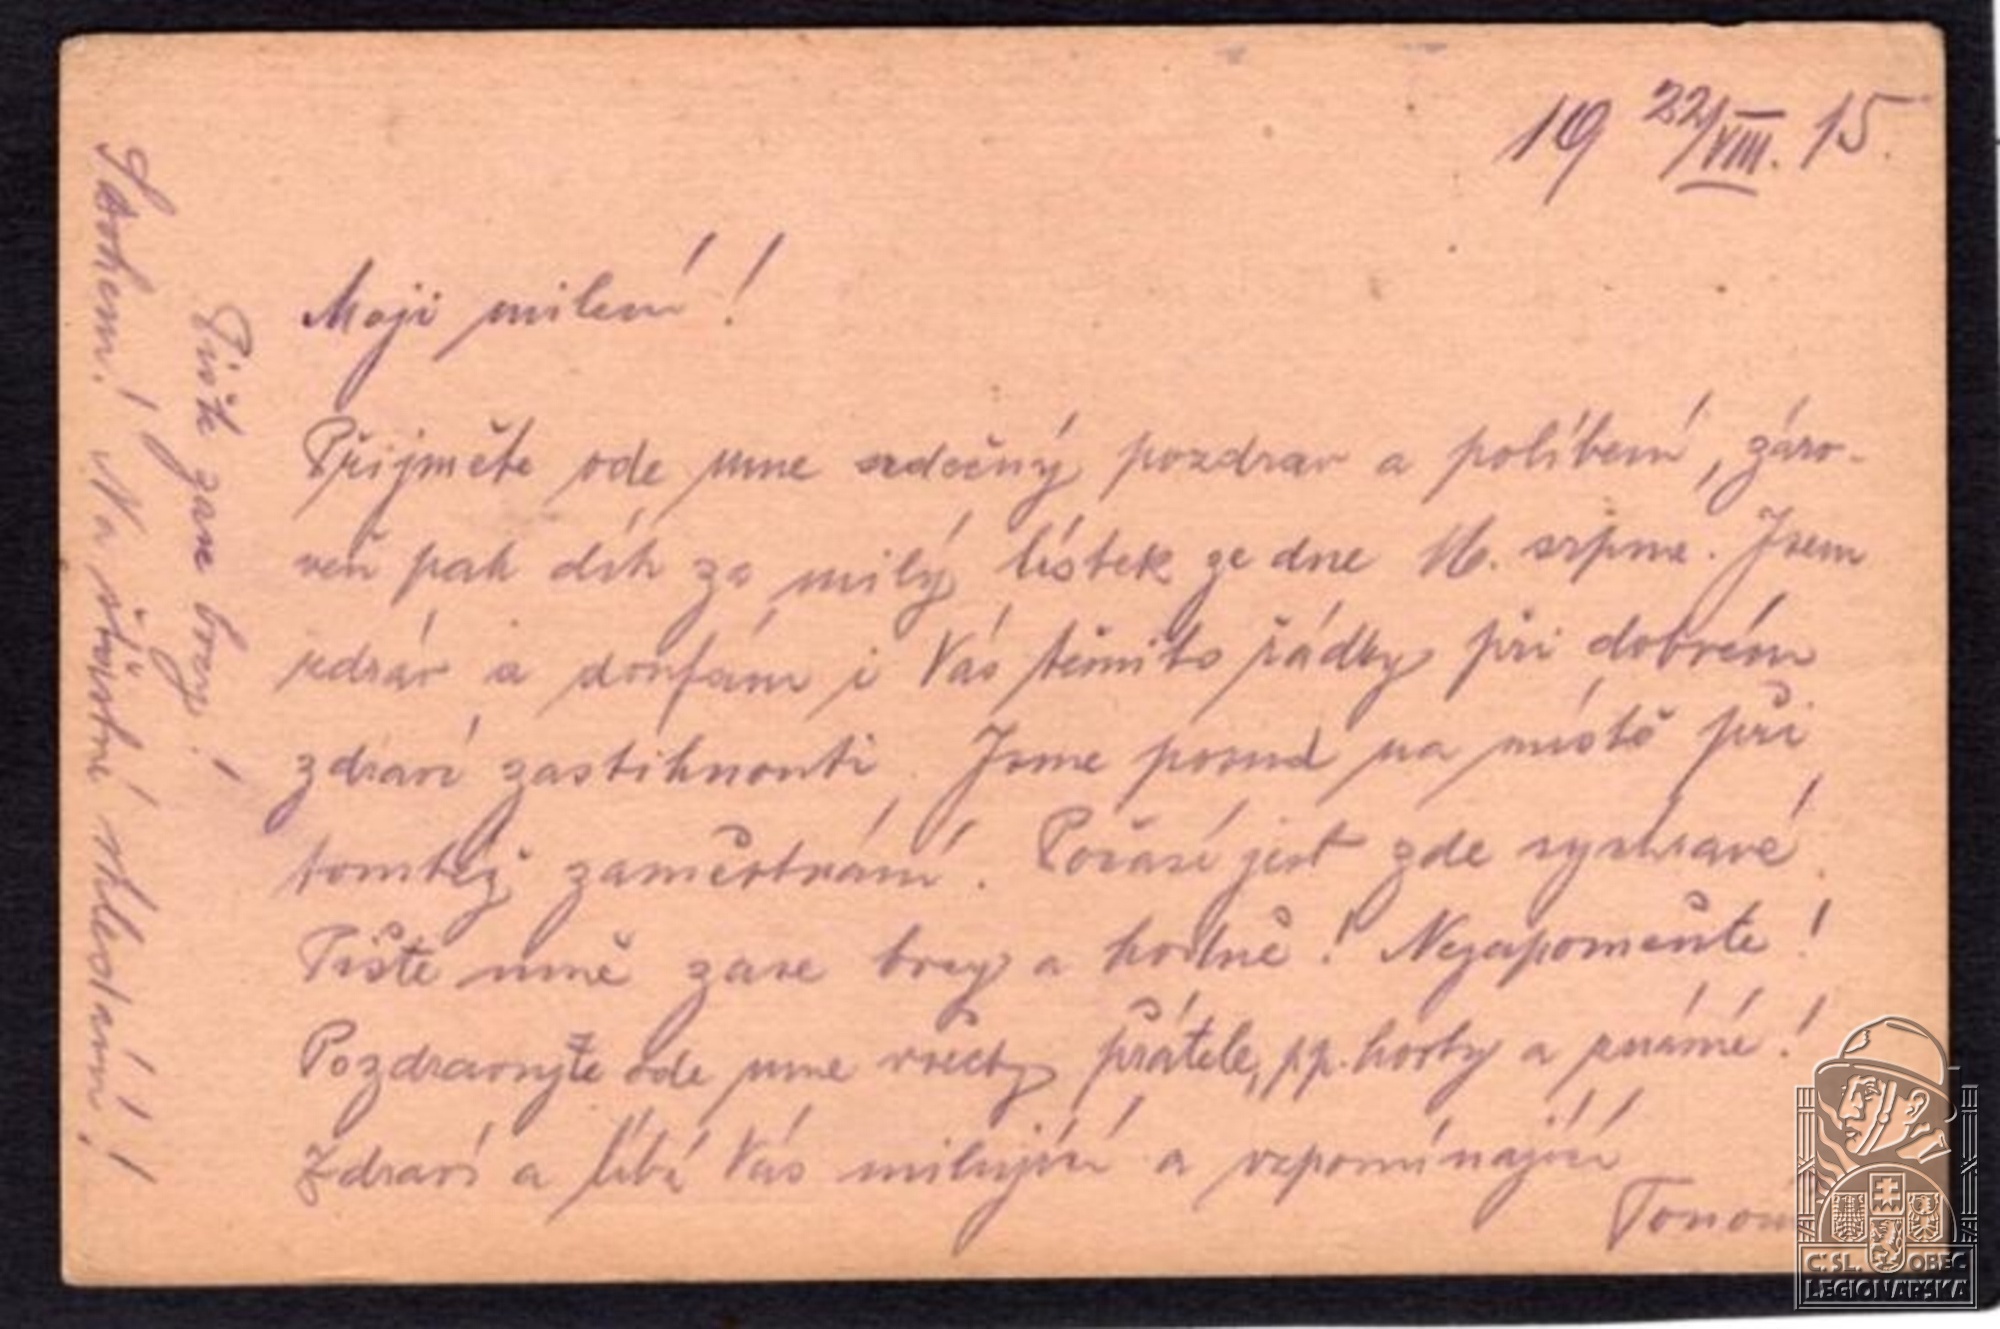 19 22/VIII. 15.
Moji milení!
Přijměte ode mne srdečný pozdrav a políbení, záro-
veň pak dík za milý lístek ze dne 16. srpna. Jsem
zdráv a doufám i Vás těmito řádky při dobrém
zdraví zastihnouti. Jsme posud na místě při
tomtéž zaměstnání. Počasí jest zde vystravé.
Pište mně zase brzy a hodně! Nezapomeňte!
Pozdravujte ode mne všecky přátele, pp. horty a známé!
Zdraví a líbá Vás milující a vzpomínající
Pište zase brzy!
Sbohem! Na šťastné shledání!
Č. SL. OBEC
LEGIONÁŘSKÁ